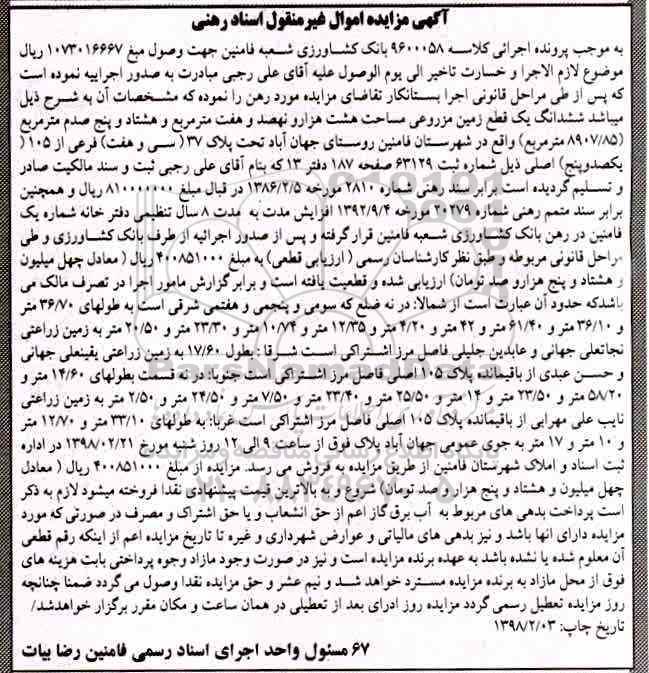 آگهی مزایده اموال غیرمنقول اسناد رهنی
به موجب پرونده اجرائی کلاسه ۹۶۰۰۰۵۸ بانک کشاورزی شعبه فامنین جهت وصول مبغ ۱۰۷۳۰۱۶۶۶۷ ریال
موضوع لازم الاجرا و خسارت تاخیر الی یوم الوصول علیه آقای علی رجبی مبادرت به صدور اجراییه نموده است
که پس از طی مراحل قانونی اجرا بستانکار تقاضای مزایده مورد رهن را نموده که مشخصات آن به شرح ذیل
میباشد ششدانگ یک قطع زمین مزروعی مساحت هشت هزارو نهصد و هفت مترمربع و هشتاد و پنج صدم مترمربع
(۸۹۰۷/۸۵ مترمربع) واقع در شهرستان فامنین روستای جهان آباد تحت پلاک ۳۷ (سی و هفت) فرعی از ۱۰۵ (
یکصدوپنج) اصلی ذیل شماره ثبت ۶۳۱۲۹ صفحه ۱۸۷ دفتر ۱۳ که بنام آقای علی رجبی ثبت و سند مالکیت صادر
و تسلیم گردیده است برابر سند رهنی شماره ۲۸۱۰ مورخه ۱۳۸۶/۲/۵ در قبال مبلغ ۸۱۰۰۰۰۰۰۰ ریال و همچنین
برابر سند متمم رهنی شماره ۲۰۲۷۹ مورخه ۱۳۹۲/۹/۴ افزایش مدت به مدت ۸ سال تنظیمی دفتر خانه شماره یک
فامنین در رهن بانک کشاورزی شعبه فامنین قرار گرفته و پس از صدور اجرائیه از طرف بانک کشاورزی و طی
مراحل قانونی مربوطه و طبق نظر کارشناسان رسمی ( ارزیابی قطعی) به مبلغ ۴۰۰۸۵۱۰۰۰ ریال ( معادل چهل میلیون
و هشتاد و پنج هزارو صد تومان) ارزیابی شده و قطعیت یافته است و برابر گزارش مامور اجرا در تصرف مالک می
باشدکه حدود آن عبارت است از شمالا: در نه ضلع که سومی و پنجمی و هفتمی شرقی است به طولهای ۳۶/۷۰ متر
و ۳۶/۱۰ متر و ۶۱/۴۰ متر و ۴۲ متر و ۴/۲۰ متر و ۱۲/۳۵ متر و ۱۰/۷۴ متر و ۲۳/۳۰ متر و ۲۰/۵۰ متر به زمین زراعتی
نجاتعلی جهانی و عابدین جلیلی فاصل مرز اشتراکی است شرقا : بطول ۱۷/۶۰ به زمین زراعتی یقینعلی جهانی
و حسن عبدی از باقیمانده پلاک ۱۰۵ اصلی فاصل مرز اشتراکی است جنوبا: در نه قسمت بطولهای ۱۴/۶۰ متر و
۵۸/۲۰ متر و ۲۳/۵۰ متر و ۱۴ متر و ۲۵/۵۰ متر و ۲۳/۴۰ متر و ۷/۵۰ متر و ۲۴/۵۰ متر و ۲/۵۰ متر به زمین زراعتی
نایب علی مهرابی از باقیمانده پلاک ۱۰۵ اصلی فاصل مرز اشتراکی است غربا: به طولهای ۳۳/۱۰ متر و ۱۲/۷۰ متر
و ۱۰ متر و ۱۷ متر به جوی عمومی جهان آباد پلاک فوق از ساعت ۹ الی ۱۲ روز شنبه مورخ ۱۳۹۸/۰۲/۲۱ در اداره
ثبت اسناد و املاک شهرستان فامنین از طریق مزایده به فروش می رسد. مزایده از مبلغ ۴۰۰۸۵۱۰۰۰ ریال ( معادل
چهل میلیون و هشتاد و پنج هزار و صد تومان) شروع و به بالاترین قیمت پیشنهادی نقدا فروخته میشود لازم به ذکر
است پرداخت بدهی های مربوط به آب برق گاز اعم از حق انشعاب و یا حق اشتراک و مصرف در صورتی که مورد
مزایده دارای انها باشد و نیز بدهی های مالیاتی و عوارض شهرداری و غیره تا تاریخ مزایده اعم از اینکه رقم قطعی
آن معلوم شده یا نشده باشد به عهده برنده مزایده است و نیز در صورت وجود مازاد وجوه پرداختی بابت هزینه های
فوق از محل مازاد به برنده مزایده مسترد خواهد شد و نیم عشر و حق مزایده نقدا وصول می گردد ضمنا چنانچه
روز مزایده تعطیل رسمی گردد مزایده روز ادرای بعد از تعطیلی در همان ساعت و مکان مقرر برگزار خواهدشد/
تاریخ چاپ: ۱۳۹۸/۲/۰۳
۶۷ مسئول واحد اجرای اسناد رسمی فامنین رضا بیات